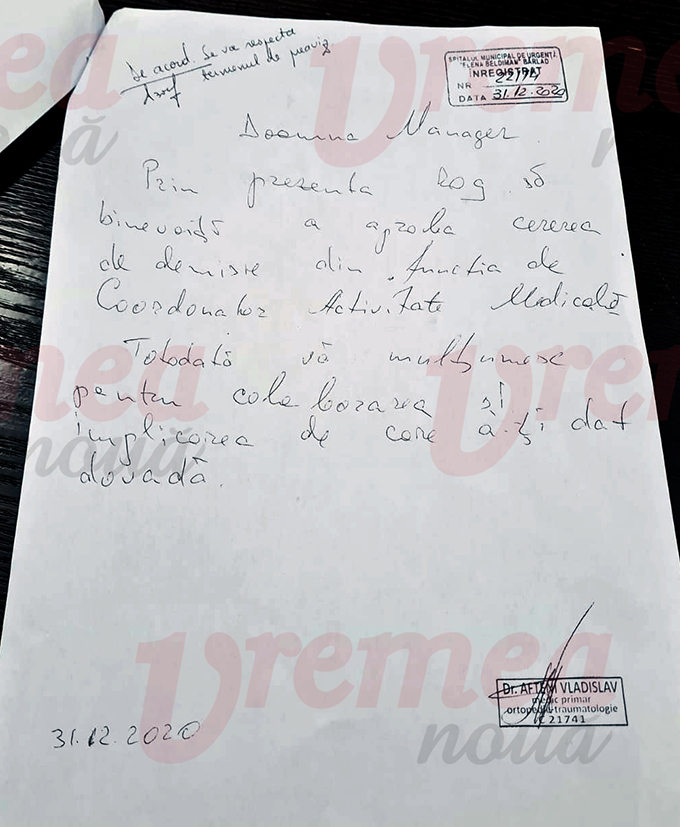 De acord. Se va respecta
termenul de preaviz
SPITALUL MUNICIPAL DE URGENȚĂ
"ELENA BELDIMAN" BÂRLAD
ÎNREGISTRAT
NR
DATA 31.12.2020
Doamna Manager
Prin prezenta rog să
binevoiți a aproba cererea
de demisie din funcția de
Coordonator Activitate Medicală
Totodată vă mulțumesc
pentru colaborarea și
implicarea de care ați dat
dovadă.
Dr. AFTENI VLADISLAV
medic primar
ortopedie traumatologie
C 21741
31.12.2020
vremea
nouă
vremea
nouă
vremea
nouă
vremea
nouă
vremea
nouă